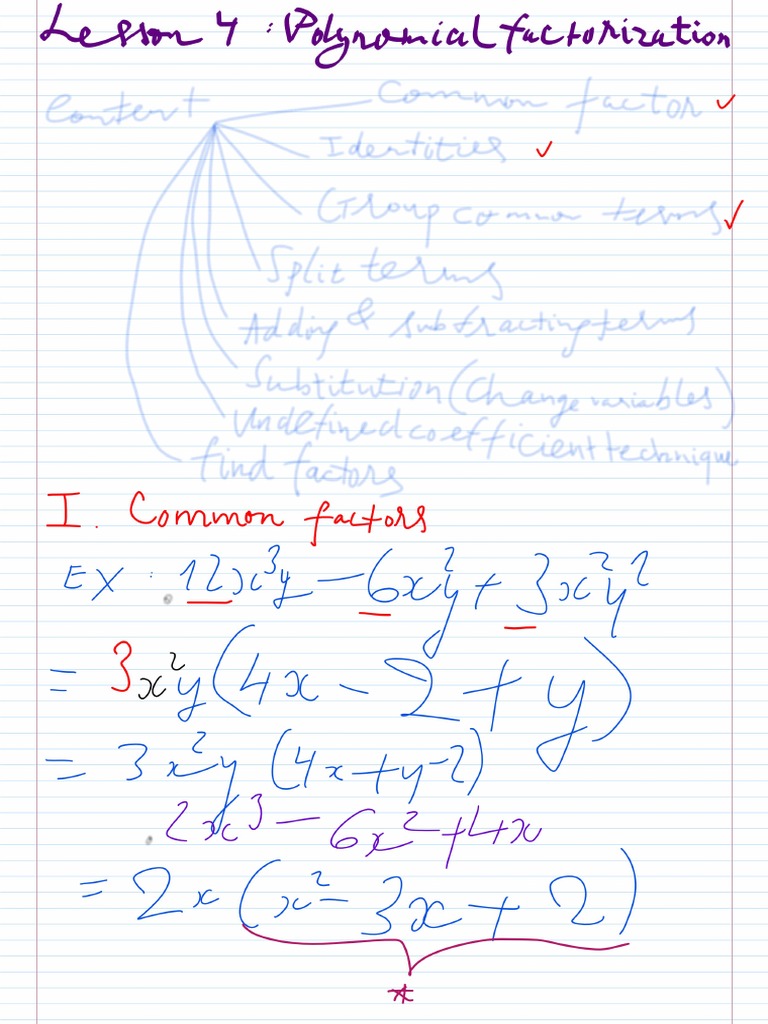 Lesson 4 : Polynomial factorization
Content
Common factor ✓
Identities ✓
Group common terms ✓
Split terms
Adding & subtracting terms
Substitution (Change variables)
Undefined coefficient technique
find factors
I. Common factors
EX : 12x³y − 6x²y + 3x²y²
= 3x²y(4x − 2 + y)
= 3x²y (4x + y − 2)
. 2x³ − 6x² + 4x
= 2x (x² − 3x + 2)
*